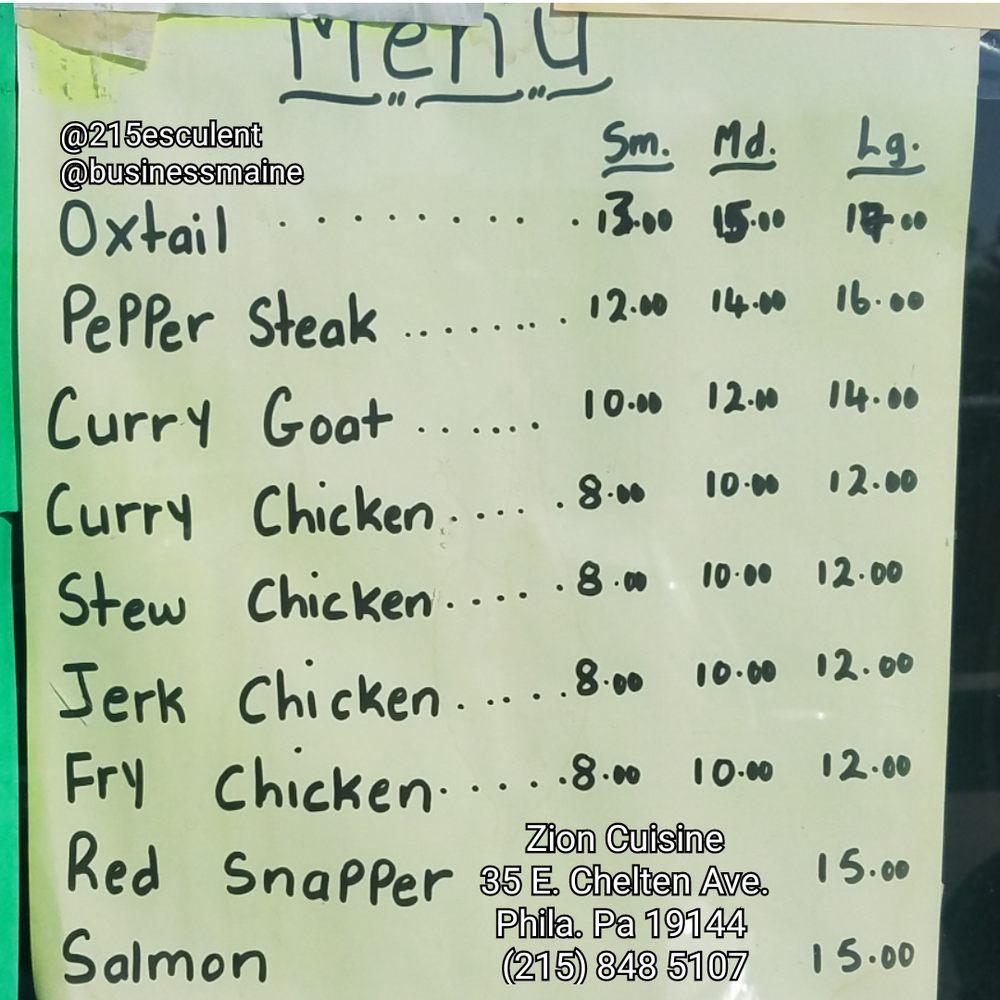 Menu
@215esculent
@businessmaine
Sm. Md. Lg.
Oxtail . . . . . . . . . . 13.00 15.00 17.00
Pepper Steak ........ 12.00 14.00 16.00
Curry Goat ...... 10.00 12.00 14.00
Curry Chicken ..... 8.00 10.00 12.00
Stew Chicken ..... 8.00 10.00 12.00
Jerk Chicken ...... 8.00 10.00 12.00
Fry Chicken ...... 8.00 10.00 12.00
Red Snapper 15.00
Salmon 15.00
Zion Cuisine
35 E. Chelten Ave.
Phila. Pa 19144
(215) 848 5107